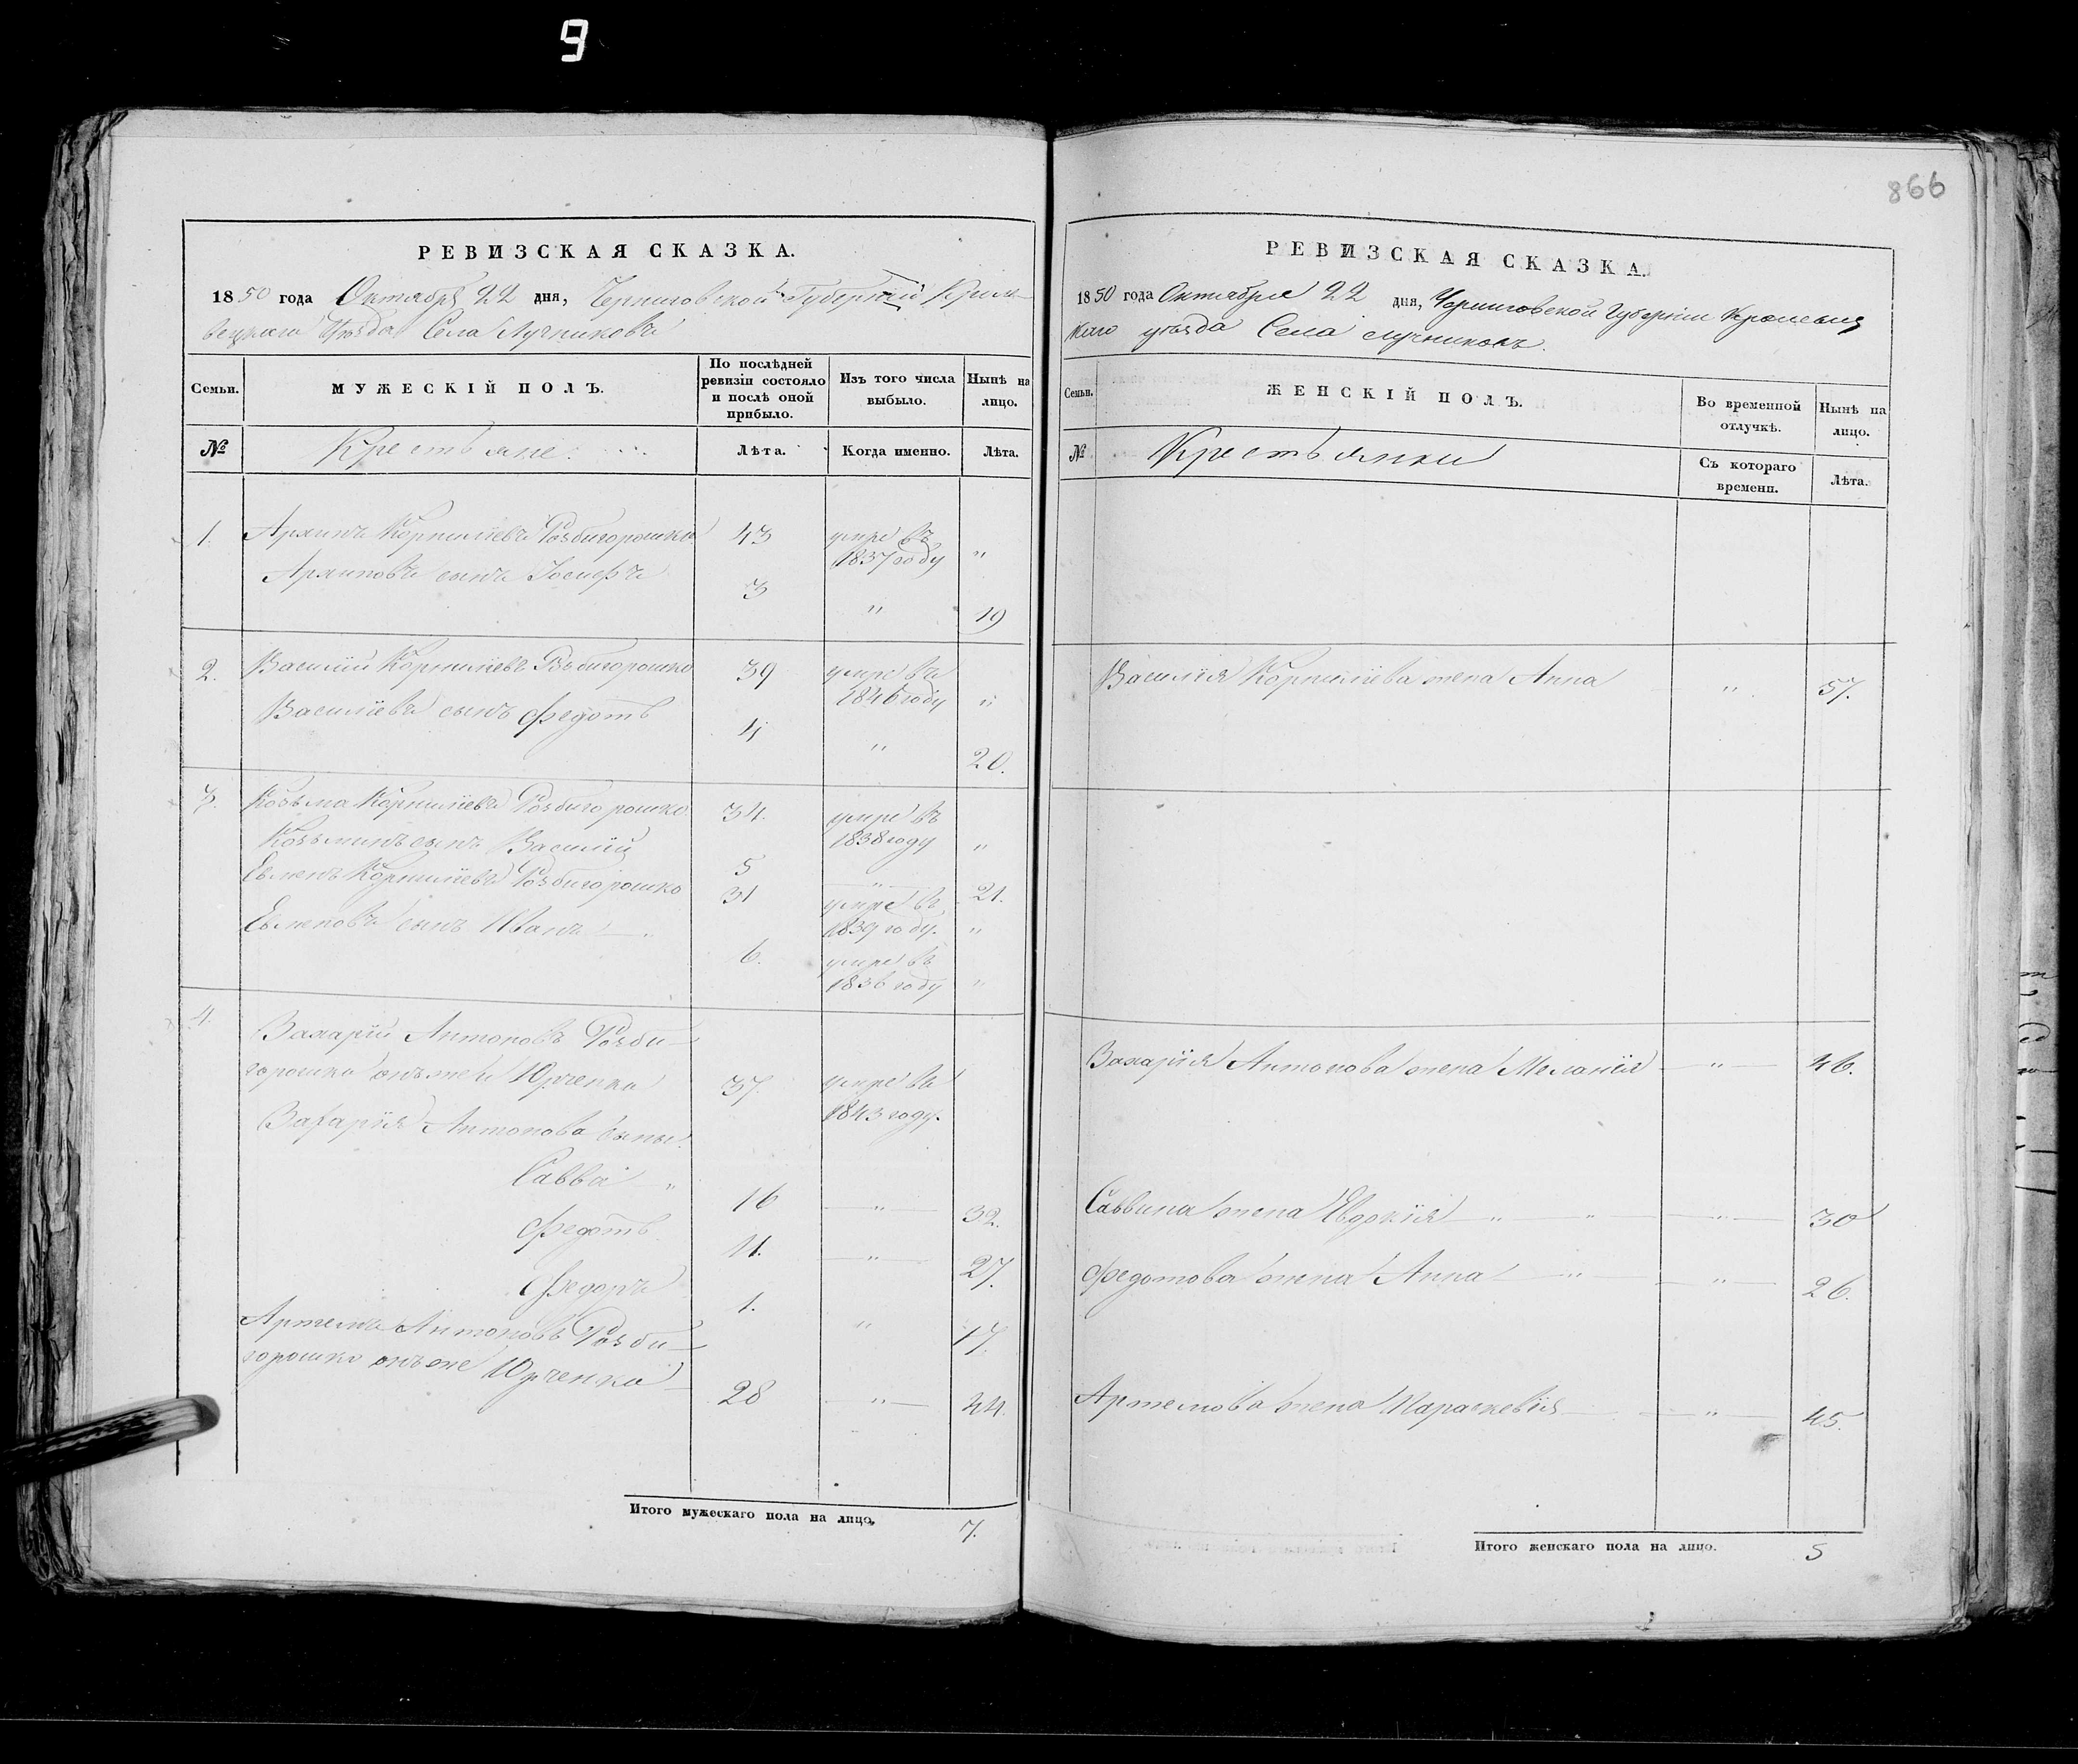 9
866
РЕВИЗСКАЯ СКАЗКА.
1850 года Октября 22 дня, Черниговской Губерніи Кроле-
вецкаго Уѣзда Села Лучниковъ
Семьи.
МУЖЕСКІЙ ПОЛЪ.
По послѣдней ревизіи состояло и послѣ оной прибыло.
Изъ того числа выбыло.
Нынѣ на лицо.
№
Крестьяне.
Лѣта.
Когда именно.
Лѣта.
1. Архипъ Корнилiевъ Розбигорошко 43 умре въ 1837 году "
Архиповъ сынъ Iосифъ 3 " 19
2. Василiй Корнилiевъ Розбигорошко 39 умре въ 1846 году "
Василiевъ сынъ Федотъ 4 " 20.
3. Козьма Корнилiевъ Розбигорошко 34. умре въ 1838 году "
Козьминъ сынъ Василiй 5 " 21.
Евменъ Корнилiевъ Розбигорошко 31 умре въ 1839 году. "
Евменовъ сынъ Иванъ " 6. умре въ 1836 году "
4. Захарiй Антоновъ Розби-
горошко онъ же Юрченко 37. умре въ 1843 году.
Захарiя Антонова сыны:
Савва " 16 " 32.
Федотъ 11. " 27.
Федоръ 1. " 17.
Артемъ Антоновъ Розби-
горошко онъ же Юрченко 28 " 44.
Итого мужескаго пола на лицо, 7.
РЕВИЗСКАЯ СКАЗКА.
1850 года Октября 22 дня, Черниговской Губерніи Кролевец
каго уѣзда Села Лучниковъ.
Семьи.
ЖЕНСКІЙ ПОЛЪ.
Во временной отлучкѣ.
Нынѣ на лицо.
№
Крестьянки
Съ котораго времени.
Лѣта.
Василiя Корнилiева жена Анна " 57.
Захарiя Антонова жена Меланiя " 46.
Саввина жена Евдокiя " " " 30
Федотова жена Анна " " 26.
Артемова жена Параскевiя " 45.
Итого женскаго пола на лицо. 5